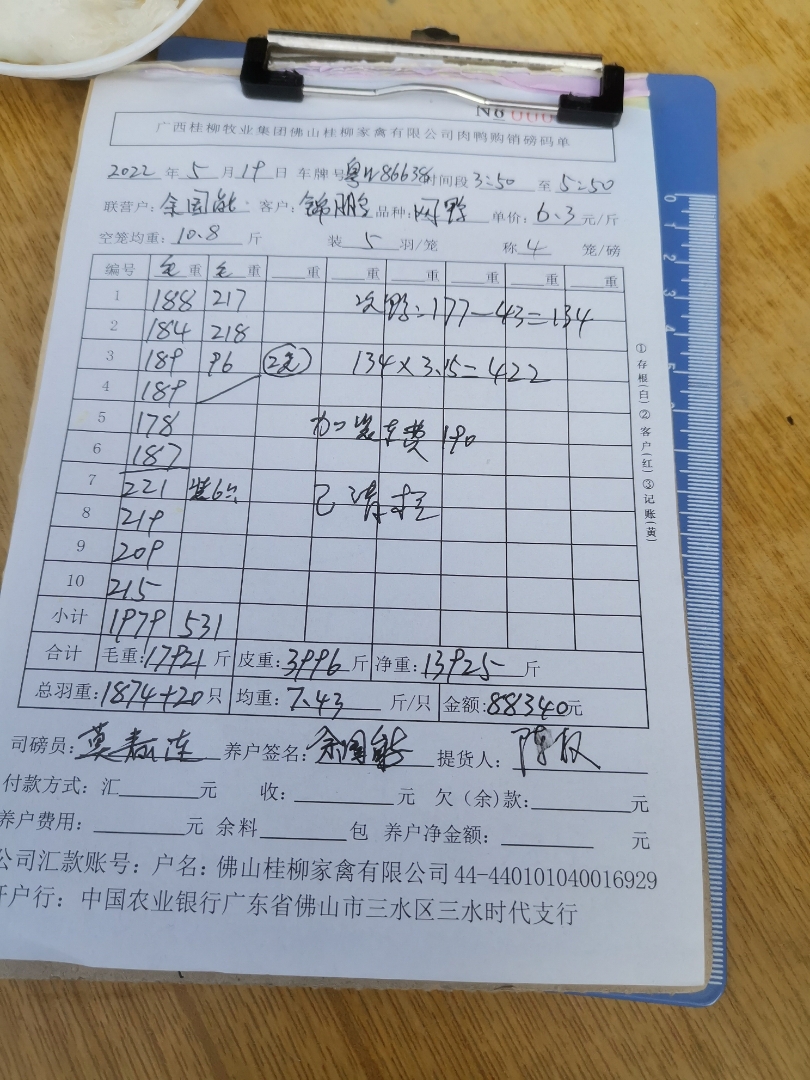 No 000
广西桂柳牧业集团佛山桂柳家禽有限公司肉鸭购销磅码单
2022 年 5 月 19 日 车牌号 86638 时间段 3:50 至 5:50
联营户: 余国能 客户: 锦鹏 品种: 肉鸭 单价: 6.3 元/斤
空笼均重: 10.8 斤 装 5 羽/笼 称 4 笼/磅
编号 毛 重 毛 重 重 重 重 重 重 重
1 188 217 次鸭:177-43=134
2 184 218
3 189 96 134×3.15=422
4 189
5 178 加装车费 190
6 187
7 221 装6只
8 219
9 209
10 215
小计 1979 531
合计 毛重: 17921 斤 皮重: 3996 斤 净重: 13925 斤
总羽重: 1874+20 只 均重: 7.43 斤/只 金额: 88340 元
司磅员: 养户签名: 余国能 提货人:
付款方式: 汇 元 收: 元 欠(余)款: 元
养户费用: 元 余料 包 养户净金额: 元
公司汇款账号: 户名: 佛山桂柳家禽有限公司 44-440101040016929
开户行: 中国农业银行广东省佛山市三水区三水时代支行
①存根(白)②客户(红)③记账(黄)
0 1 2 3 4 5